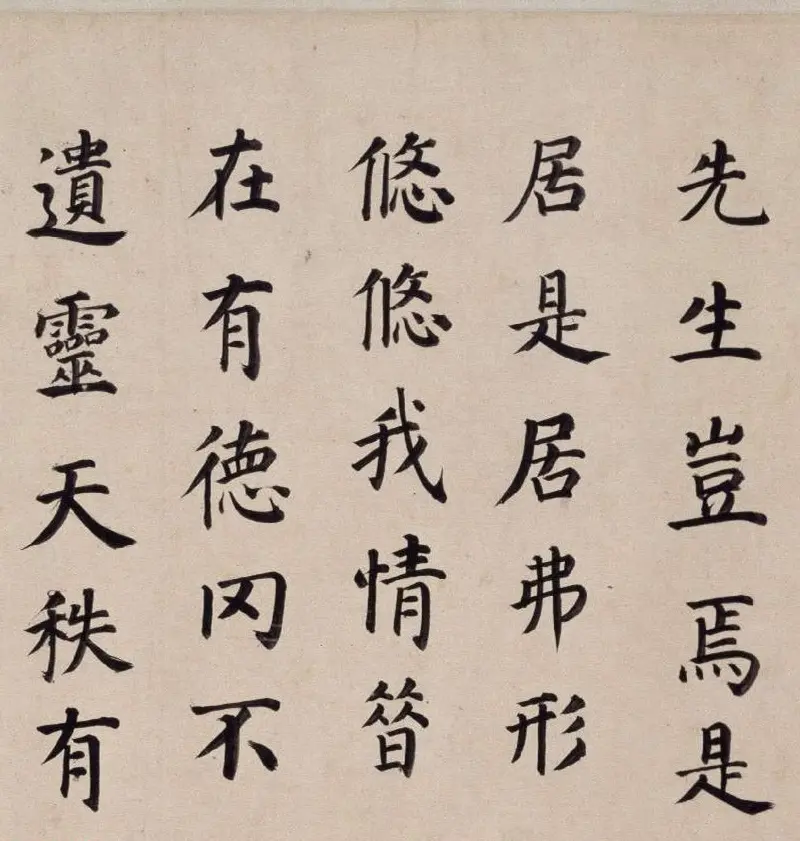 先生豈焉是
居是居弗形
悠悠我情昔
在有德罔不
遺靈天秩有